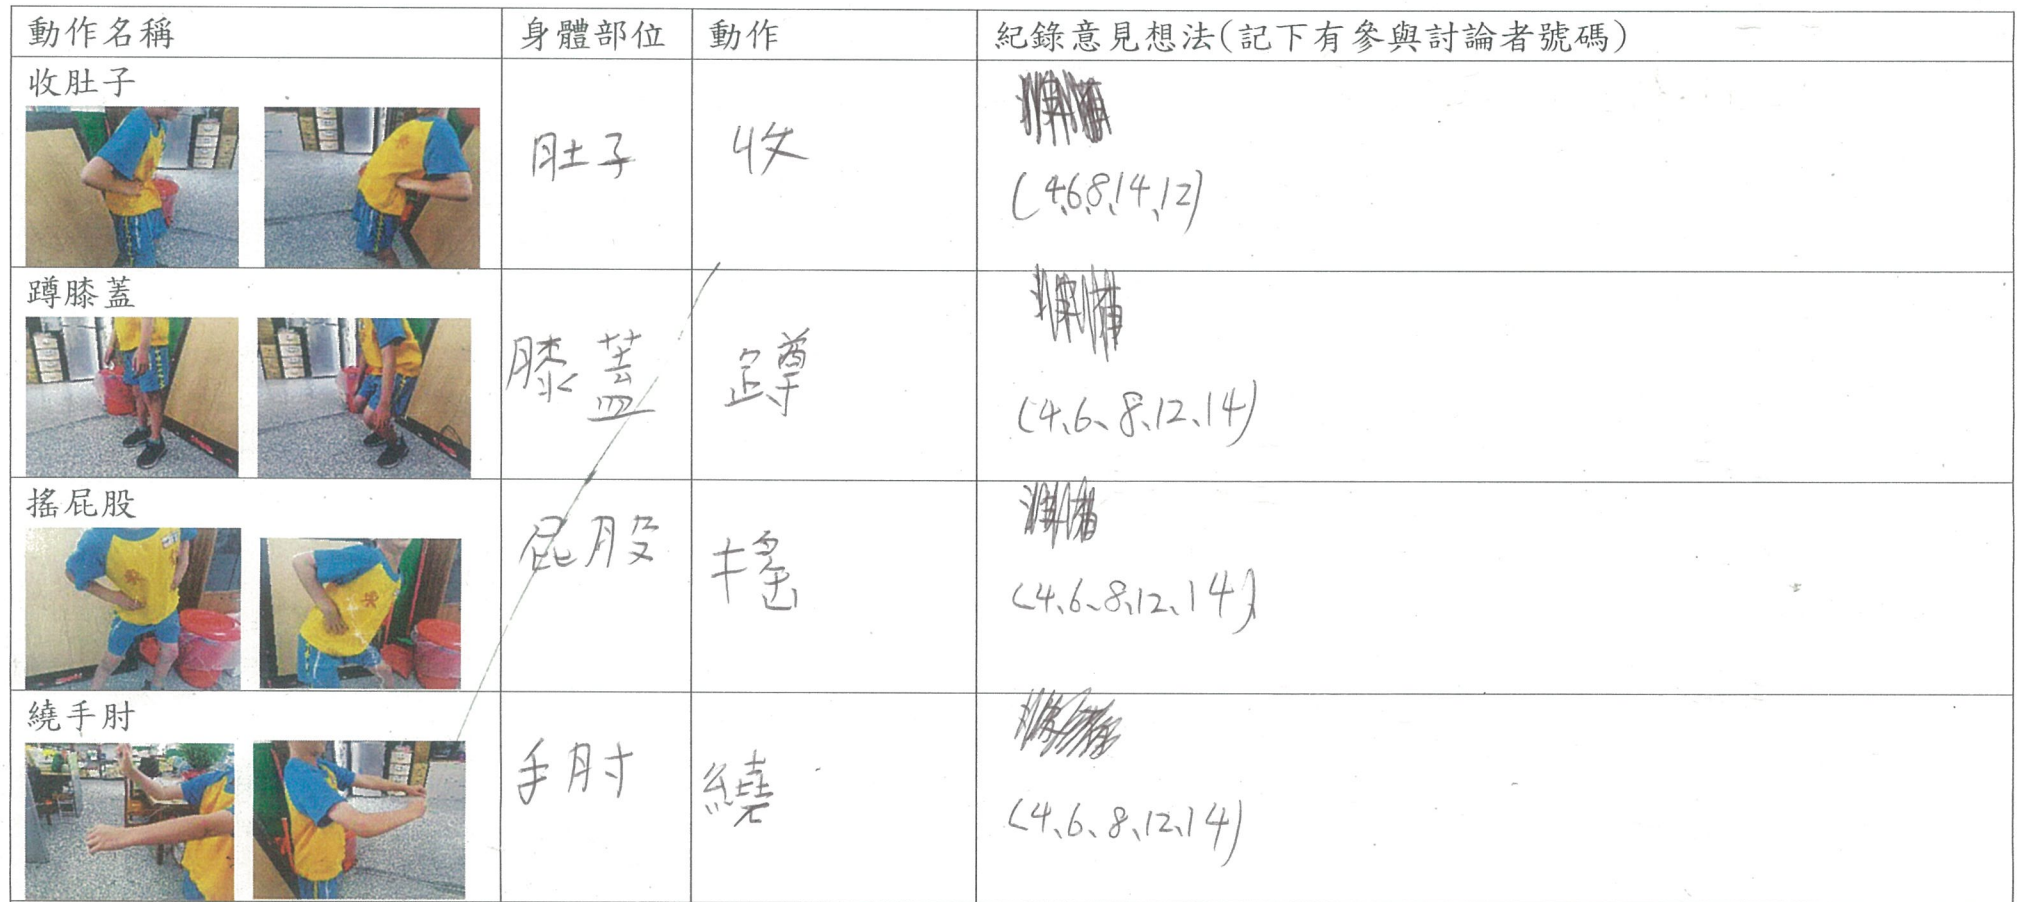 動作名稱 身體部位 動作 紀錄意見想法(記下有參與討論者號碼)
收肚子
肚子 收
(4、6、8、14、12)
蹲膝蓋
膝蓋 蹲
(4、6、8、12、14)
搖屁股
屁股 搖
(4、6、8、12、14)
繞手肘
手肘 繞
(4、6、8、12、14)